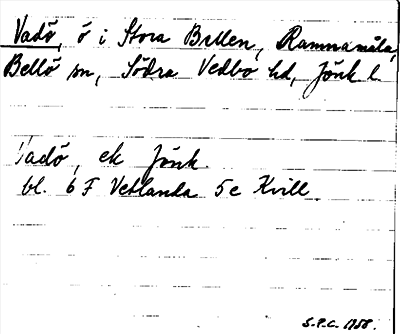 Vadö, ö i Stora Bellen, Ramnamåla,
Bellö sn, Södra Vedbo hd, Jönk l.
Vadö, ek Jönk.
bl. 6 F Vetlanda 5 c Kvill
S.P.C. 1958.